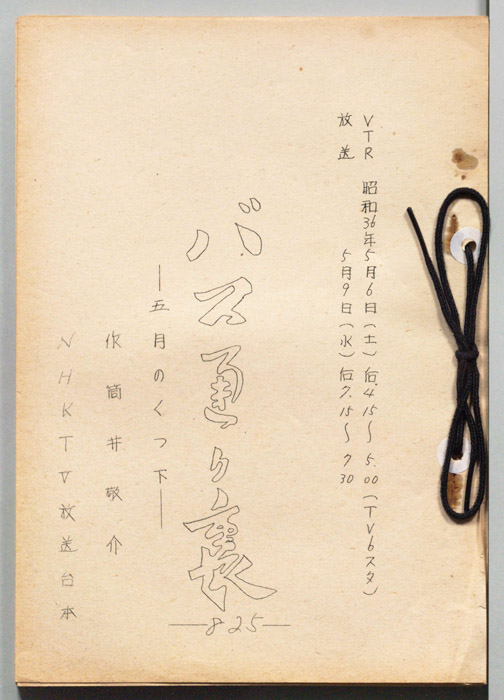 VTR 昭和36年5月6日(土)后4.15〜5.00(TV6スタ)
放送 5月9日(水)后7.15〜7.30
バス通り裏
—825—
—五月のくつ下—
作 筒井敬介
NHKTV放送台本